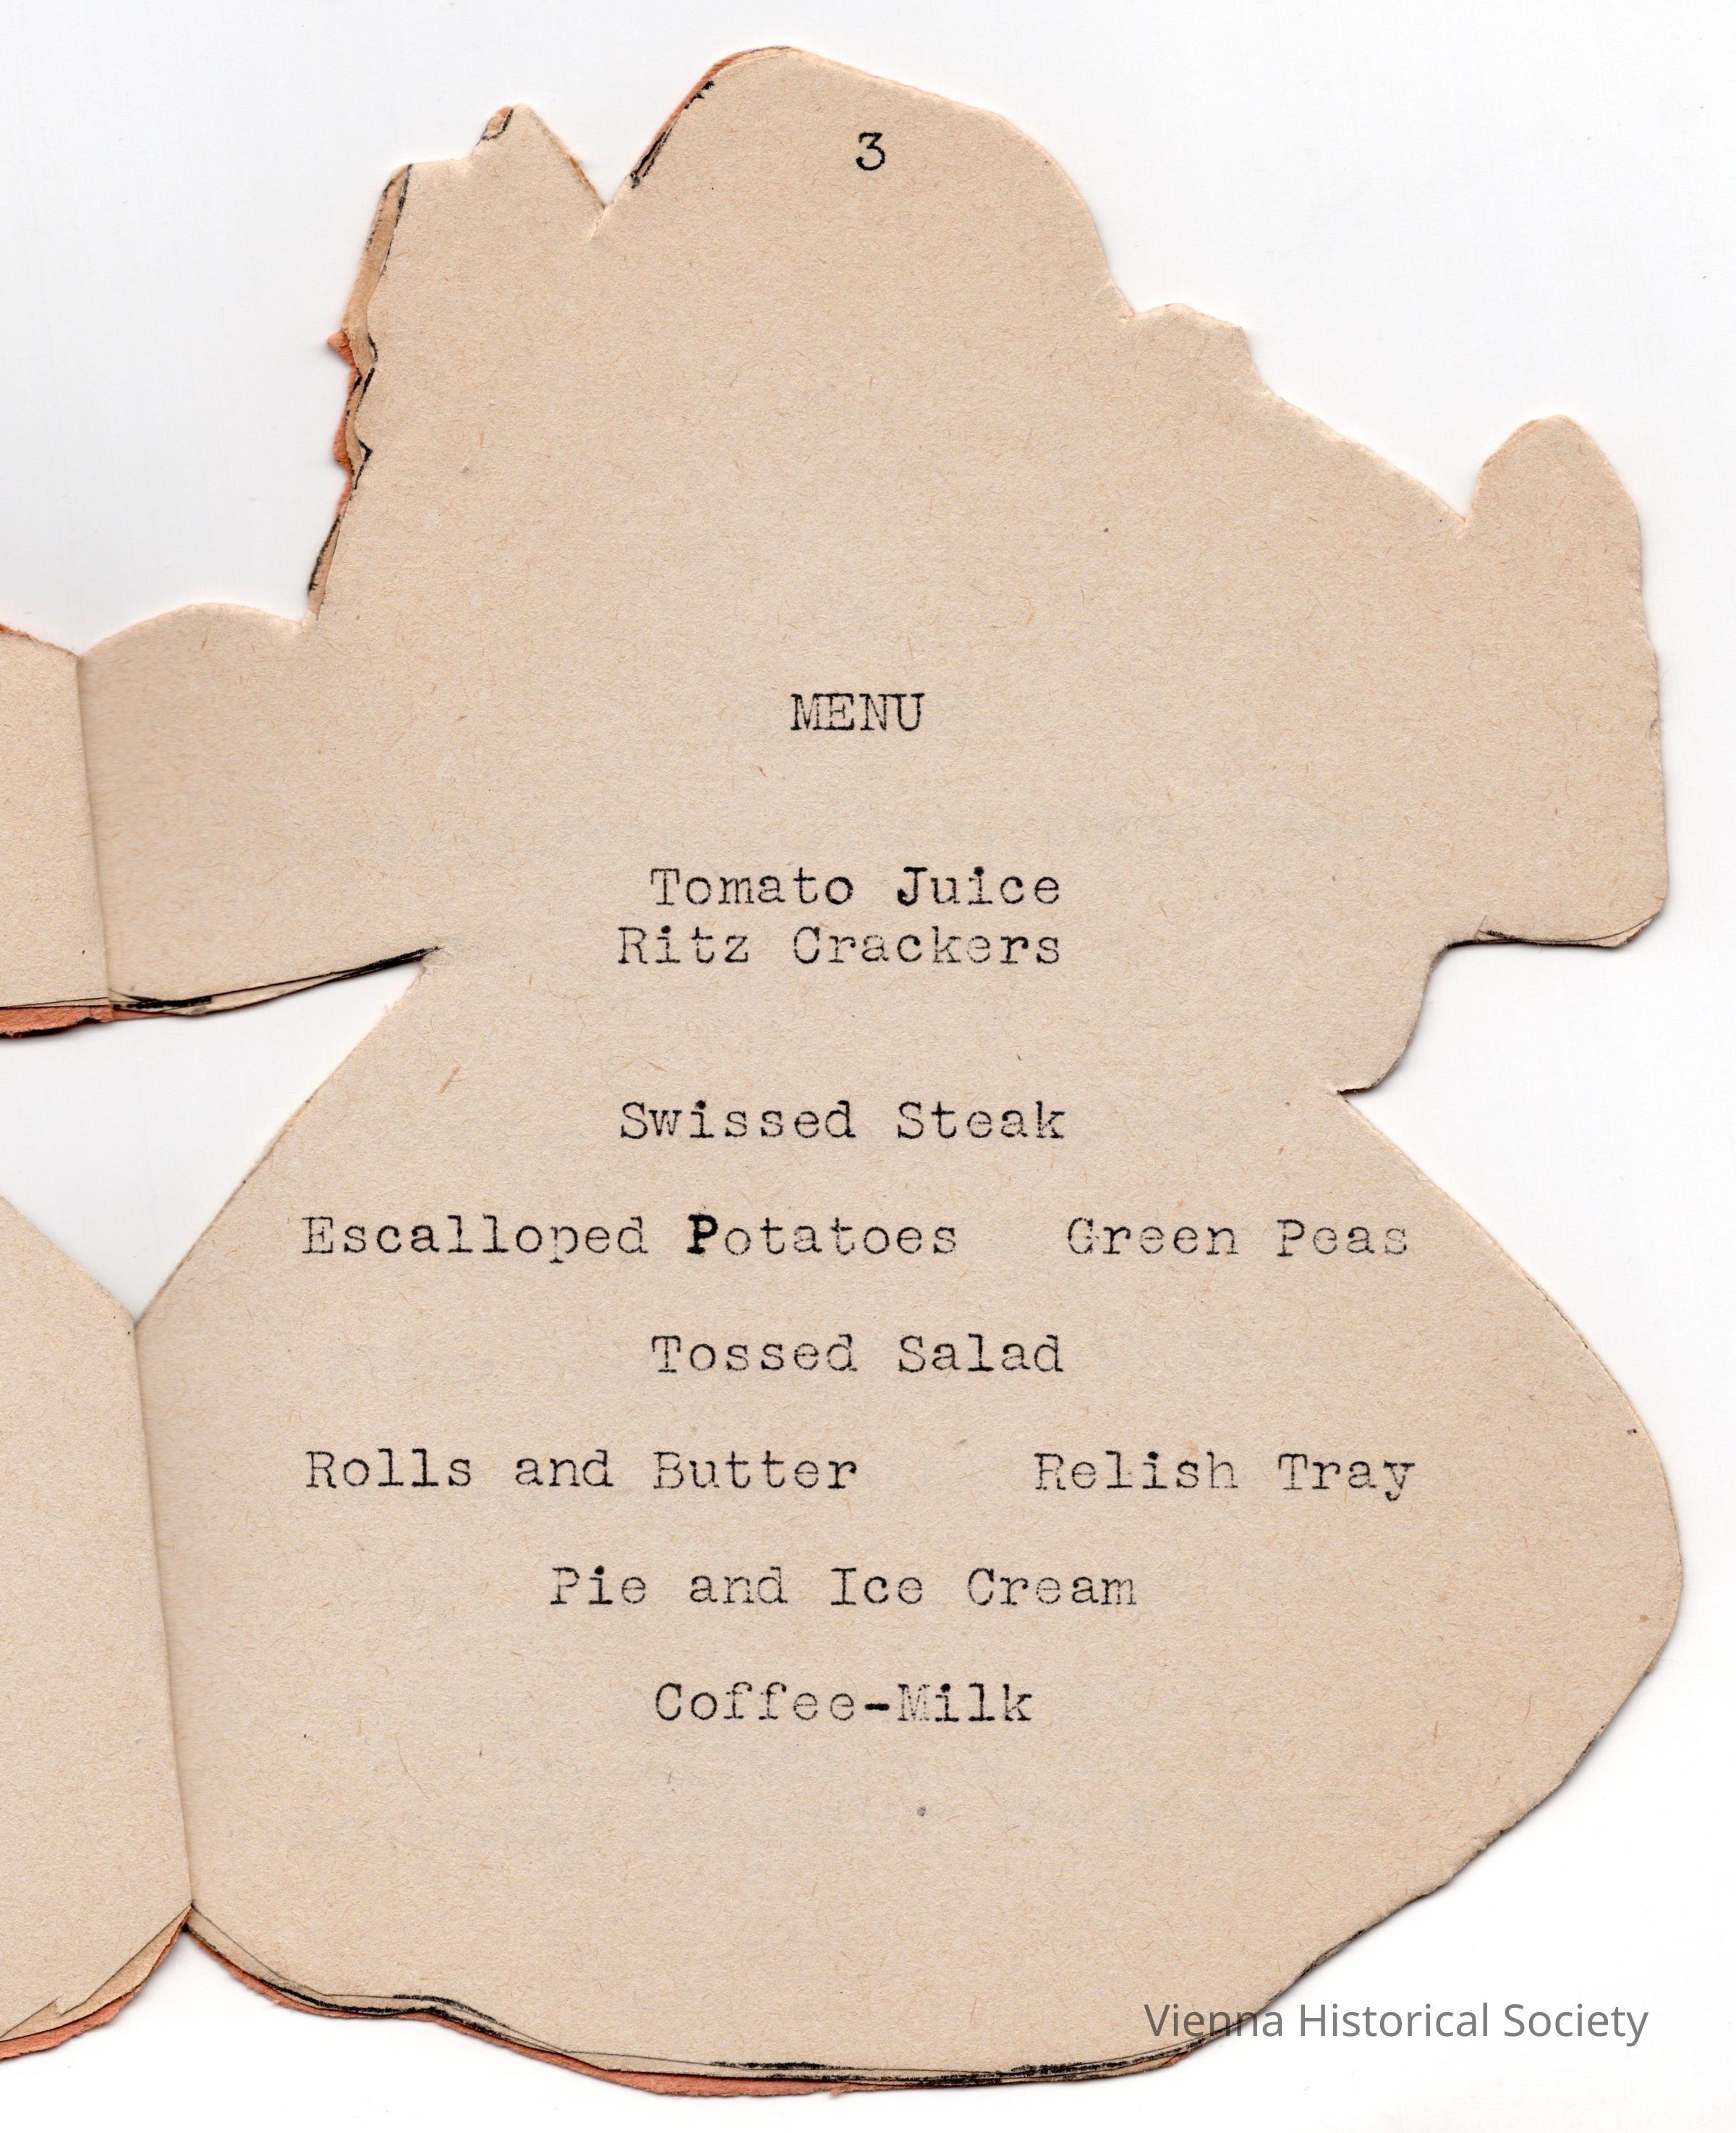 3
MENU
Tomato Juice
Ritz Crackers
Swissed Steak
Escalloped Potatoes   Green Peas
Tossed Salad
Rolls and Butter   Relish Tray
Pie and Ice Cream
Coffee-Milk
Vienna Historical Society